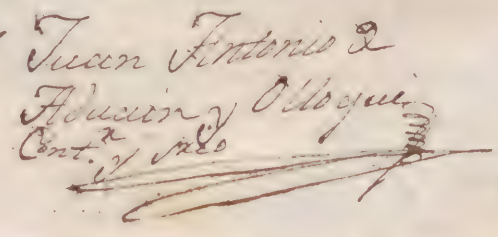 Juan Antonio d
Aduain y Olloqui
Cont.r y Srio